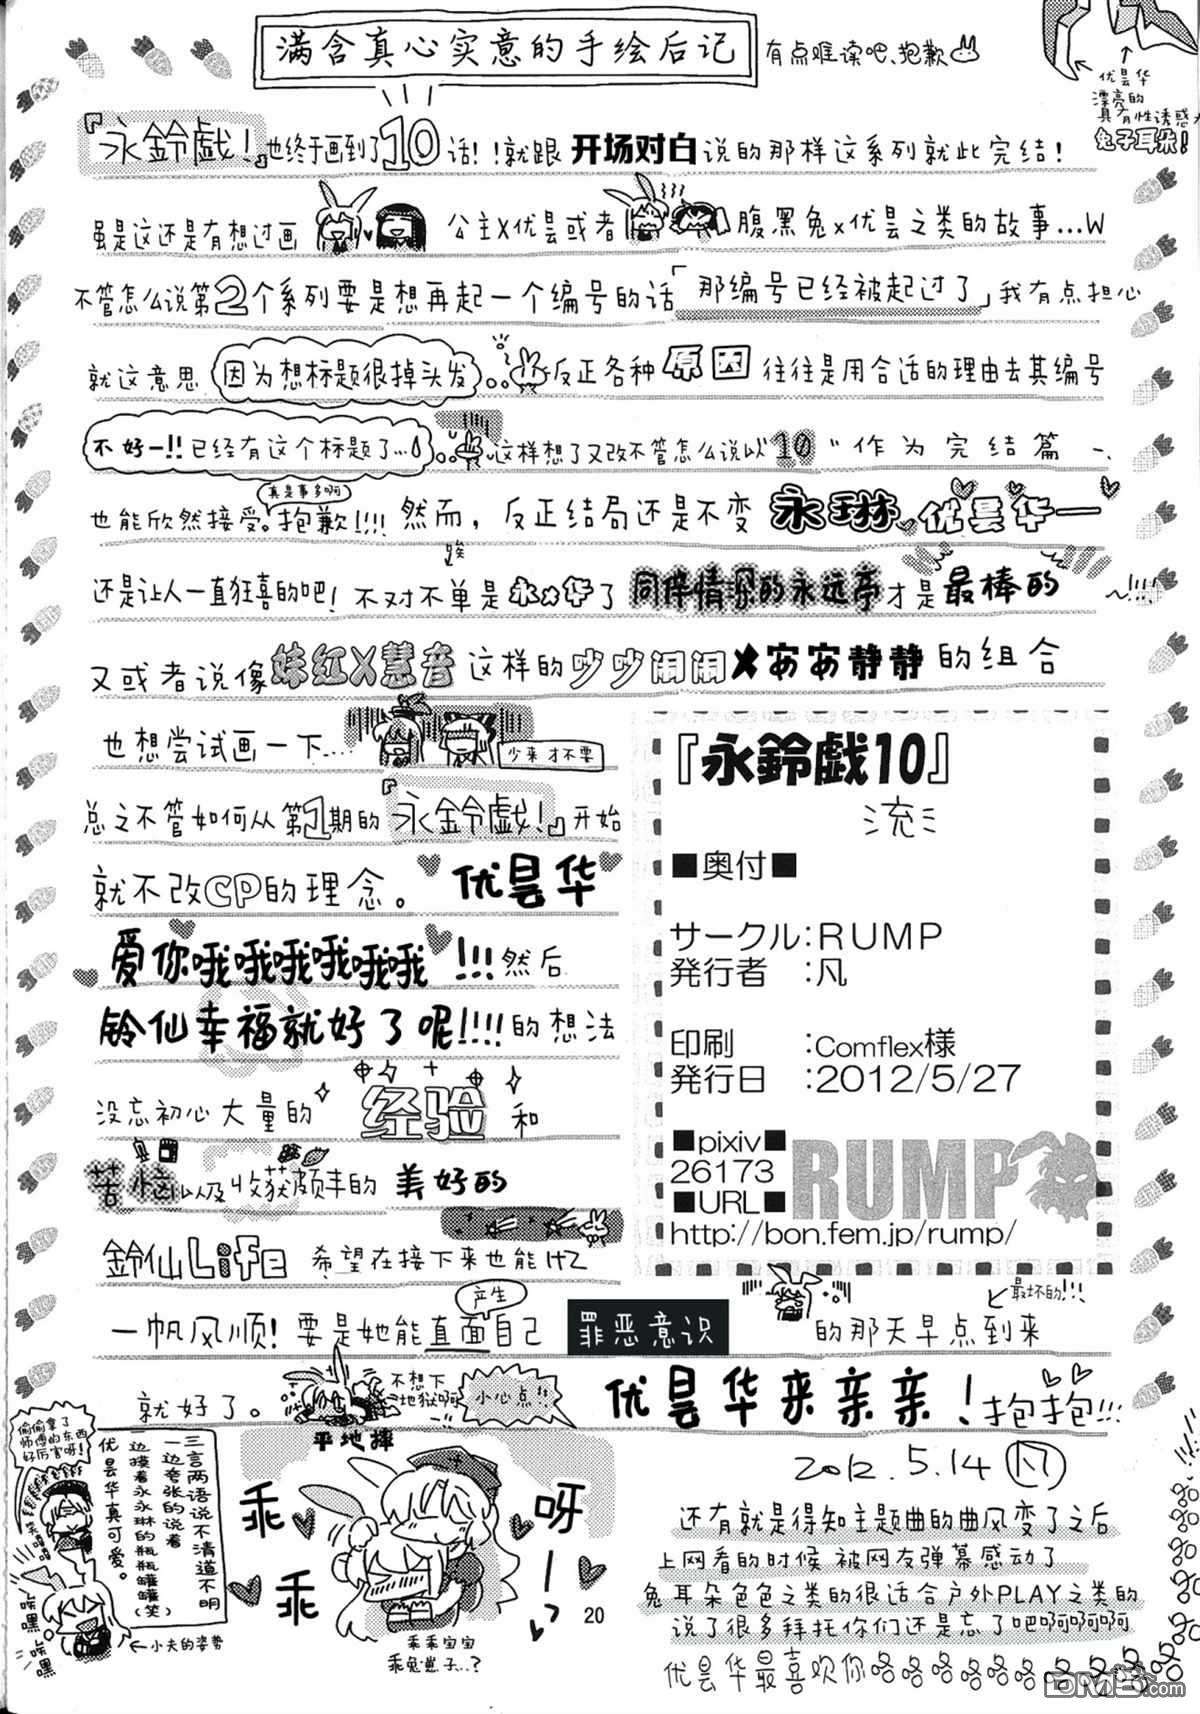 满含真心实意的手绘后记
有点难读吧、抱歉
优昙华
漂亮的
具有性诱惑力
兔子耳朵!
『永鈴戯!』也终于画到了10话!!就跟 开场对白 说的那样这系列就此完结!
虽是这还是有想过画 公主X优昙或者 腹黑兔x优昙之类的故事...W
不管怎么说第2个系列要是想再起一个编号的话「那编号已经被起过了」我有点担心
就这意思 因为想标题很掉头发 反正各种 原因 往往是用合适的理由去其编号
不好ー!!已经有这个标题了... 这样想了又改不管怎么说以“10”作为完结篇、
真是事多啊
也能欣然接受。抱歉!!!! 然而,反正结局还是不变 永琳 优昙华ー
唉
还是让人一直狂喜的吧! 不对不单是 永×华 了 同伴情深的永远亭 才是 最棒的 ~!!!!
又或者说像 妹红X慧音 这样的 吵吵闹闹X安安静静 的组合
也想尝试画一下....
少来才不要
总之不管如何从第1期的『永鈴戯!』开始
就不改CP的理念。 优昙华
爱你哦哦哦哦哦哦 !!! 然后
铃仙幸福就好了呢!!!! 的想法
没忘初心大量的 经验 和
苦恼 以及收获颇丰的 美好的
鈴仙Life 希望在接下来也能忆
产生
最坏的!!!
一帆风顺! 要是她能直面自己 罪恶意识 的那天早点到来
就好了。
不想下
地狱啊
小心点!!
平地摔
优昙华来亲亲!抱抱!!!
『永鈴戯10』
流ミ
■奥付■
サークル:RUMP
発行者 :凡
印刷 :Comflex様
発行日 :2012/5/27
■pixiv■
26173
■URL■
RUMP
http://bon.fem.jp/rump/
2012.5.14 凡
偷偷拿了
师傅的东西
好厉害呀!
三言两语说不清道不明
一边夸张的说着
一边摸着永永琳的瓶瓶罐罐(笑)
优昙华真可爱。
咲黑
咲黑
小夫的姿势
乖
乖
呀
ー
乖乖宝宝
乖兔崽子...?
20
还有就是得知主题曲的曲风变了之后
上网看的时候 被网友弹幕感动了
兔耳朵色色之类的很适合户外PLAY之类的
说了很多拜托你们还是忘了吧啊啊啊啊
优昙华最喜欢你咯咯咯咯咯咯咯咯咯咯咯